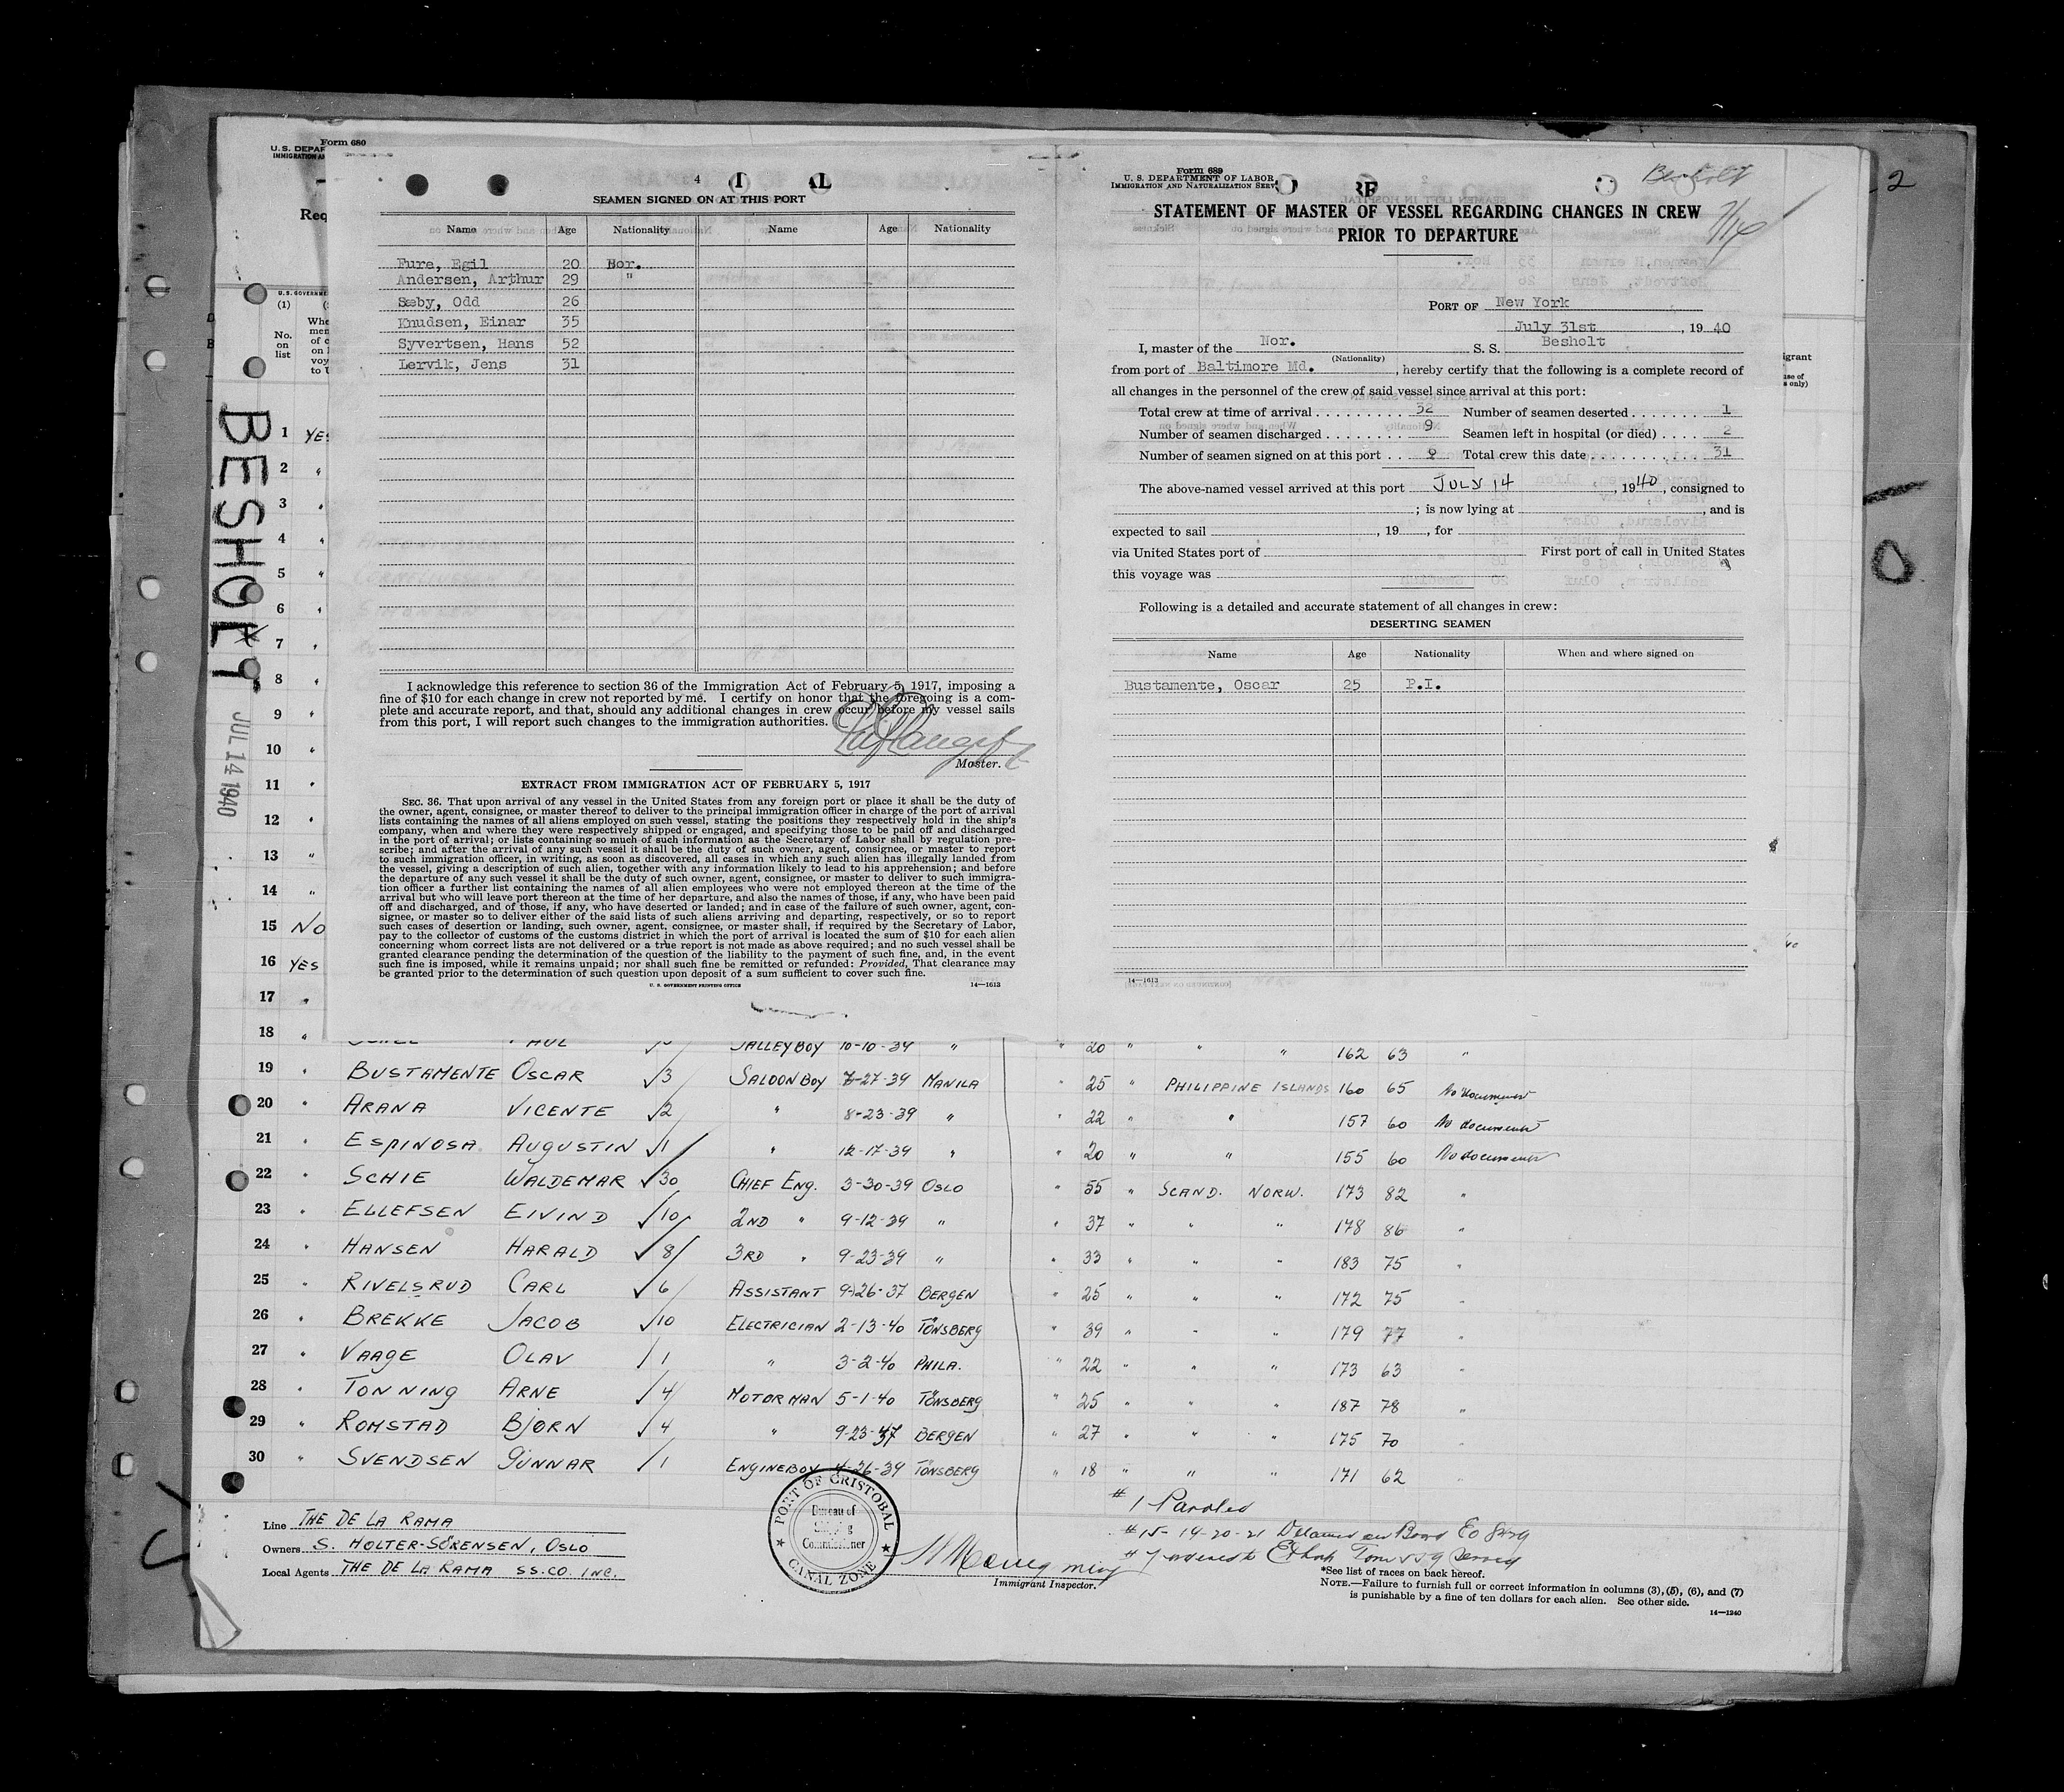 Form 680
U. S. DEPAR
IMMIGRATION AN
Req
U. S. GOVERNMENT
(1)
No. on list
BESHOLT
JUL 14 1940
4
SEAMEN SIGNED ON AT THIS PORT
Name Age Nationality Name Age Nationality
Fure, Egil 20 Nor.
Andersen, Arthur 29 "
Sæby, Odd 26
Knudsen, Einar 35
Syvertsen, Hans 52
Lervik, Jens 31
I acknowledge this reference to section 36 of the Immigration Act of February 5, 1917, imposing a
fine of $10 for each change in crew not reported by me. I certify on honor that the foregoing is a com-
plete and accurate report, and that, should any additional changes in crew occur before my vessel sails
from this port, I will report such changes to the immigration authorities.
Master.
EXTRACT FROM IMMIGRATION ACT OF FEBRUARY 5, 1917
SEC. 36. That upon arrival of any vessel in the United States from any foreign port or place it shall be the duty of
the owner, agent, consignee, or master thereof to deliver to the principal immigration officer in charge of the port of arrival
lists containing the names of all aliens employed on such vessel, stating the positions they respectively hold in the ship's
company, when and where they were respectively shipped or engaged, and specifying those to be paid off and discharged
in the port of arrival; or lists containing so much of such information as the Secretary of Labor shall by regulation pre-
scribe; and after the arrival of any such vessel it shall be the duty of such owner, agent, consignee, or master to report
to such immigration officer, in writing, as soon as discovered, all cases in which any such alien has illegally landed from
the vessel, giving a description of such alien, together with any information likely to lead to his apprehension; and before
the departure of any such vessel it shall be the duty of such owner, agent, consignee, or master to deliver to such immigra-
tion officer a further list containing the names of all alien employees who were not employed thereon at the time of the
arrival but who will leave port thereon at the time of her departure, and also the names of those, if any, who have been paid
off and discharged, and of those, if any, who have deserted or landed; and in case of the failure of such owner, agent, con-
signee, or master so to deliver either of the said lists of such aliens arriving and departing, respectively, or so to report
such cases of desertion or landing, such owner, agent, consignee, or master shall, if required by the Secretary of Labor,
pay to the collector of customs of the customs district in which the port of arrival is located the sum of $10 for each alien
concerning whom correct lists are not delivered or a true report is not made as above required; and no such vessel shall be
granted clearance pending the determination of the question of the liability to the payment of such fine, and, in the event
such fine is imposed, while it remains unpaid; nor shall such fine be remitted or refunded: Provided, That clearance may
be granted prior to the determination of such question upon deposit of a sum sufficient to cover such fine.
U. S. GOVERNMENT PRINTING OFFICE 14—1613
Form 689
U. S. DEPARTMENT OF LABOR
IMMIGRATION AND NATURALIZATION SERV
Besholt
7/14
STATEMENT OF MASTER OF VESSEL REGARDING CHANGES IN CREW
PRIOR TO DEPARTURE
PORT OF New York
July 31st, 1940
I, master of the Nor. S. S. Besholt
(Nationality)
from port of Baltimore Md., hereby certify that the following is a complete record of
all changes in the personnel of the crew of said vessel since arrival at this port:
Total crew at time of arrival 32 Number of seamen deserted 1
Number of seamen discharged 9 Seamen left in hospital (or died) 2
Number of seamen signed on at this port 9 Total crew this date 31
The above-named vessel arrived at this port JULY 14, 1940, consigned to
; is now lying at , and is
expected to sail , 19 , for
via United States port of First port of call in United States
this voyage was
Following is a detailed and accurate statement of all changes in crew:
DESERTING SEAMEN
Name Age Nationality When and where signed on
Bustamente, Oscar 25 P.I.
14—1613
1 YES
2 "
3 "
4 "
5 "
6 "
7 "
8 "
9 "
10 "
11 "
12 "
13 "
14 "
15 NO
16 YES
17 "
18 " 10-10-39 " " 20 " " " 162 63 "
19 " BUSTAMENTE OSCAR 3 SALOON BOY 7-27-39 MANILA " 25 " PHILIPPINE ISLANDS 160 65 No documents
20 " ARANA VICENTE 2 " 8-23-39 " " 22 " " 157 60 No documents
21 " ESPINOSA AUGUSTIN 1 " 12-17-39 " " 20 " " 155 60 No documents
22 " SCHIE WALDEMAR 30 CHIEF ENG. 3-30-39 OSLO " 55 " SCAND. NORW. 173 82 "
23 " ELLEFSEN EIVIND 10 2ND " 9-12-39 " " 37 " " " 178 86 "
24 " HANSEN HARALD 8 3RD " 9-23-39 " " 33 " " " 183 75 "
25 " RIVELSRUD CARL 6 ASSISTANT 9-26-37 BERGEN " 25 " " " 172 75 "
26 " BREKKE JACOB 10 ELECTRICIAN 2-13-40 TÖNSBERG " 39 " " " 179 77 "
27 " VAAGE OLAV 1 " 3-2-40 PHILA. " 22 " " " 173 63 "
28 " TONNING ARNE 4 MOTORMAN 5-1-40 TÖNSBERG " 25 " " " 187 78 "
29 " ROMSTAD BJØRN 4 " 9-23-37 BERGEN " 27 " " " 175 70 "
30 " SVENDSEN GUNNAR 1 ENGINEBOY 4-26-39 TÖNSBERG " 18 " " " 171 62 "
# 1 Paroled
# 15-19-20-21 Detained on Board
Line THE DE LA RAMA
Owners S. HOLTER-SÖRENSEN, OSLO
Local Agents THE DE LA RAMA SS. CO. INC.
PORT OF CRISTOBAL
Bureau of
Shipping
Commissioner
CANAL ZONE
Immigrant Inspector.
*See list of races on back hereof.
NOTE.—Failure to furnish full or correct information in columns (3), (5), (6), and (7)
is punishable by a fine of ten dollars for each alien. See other side.
14—1240